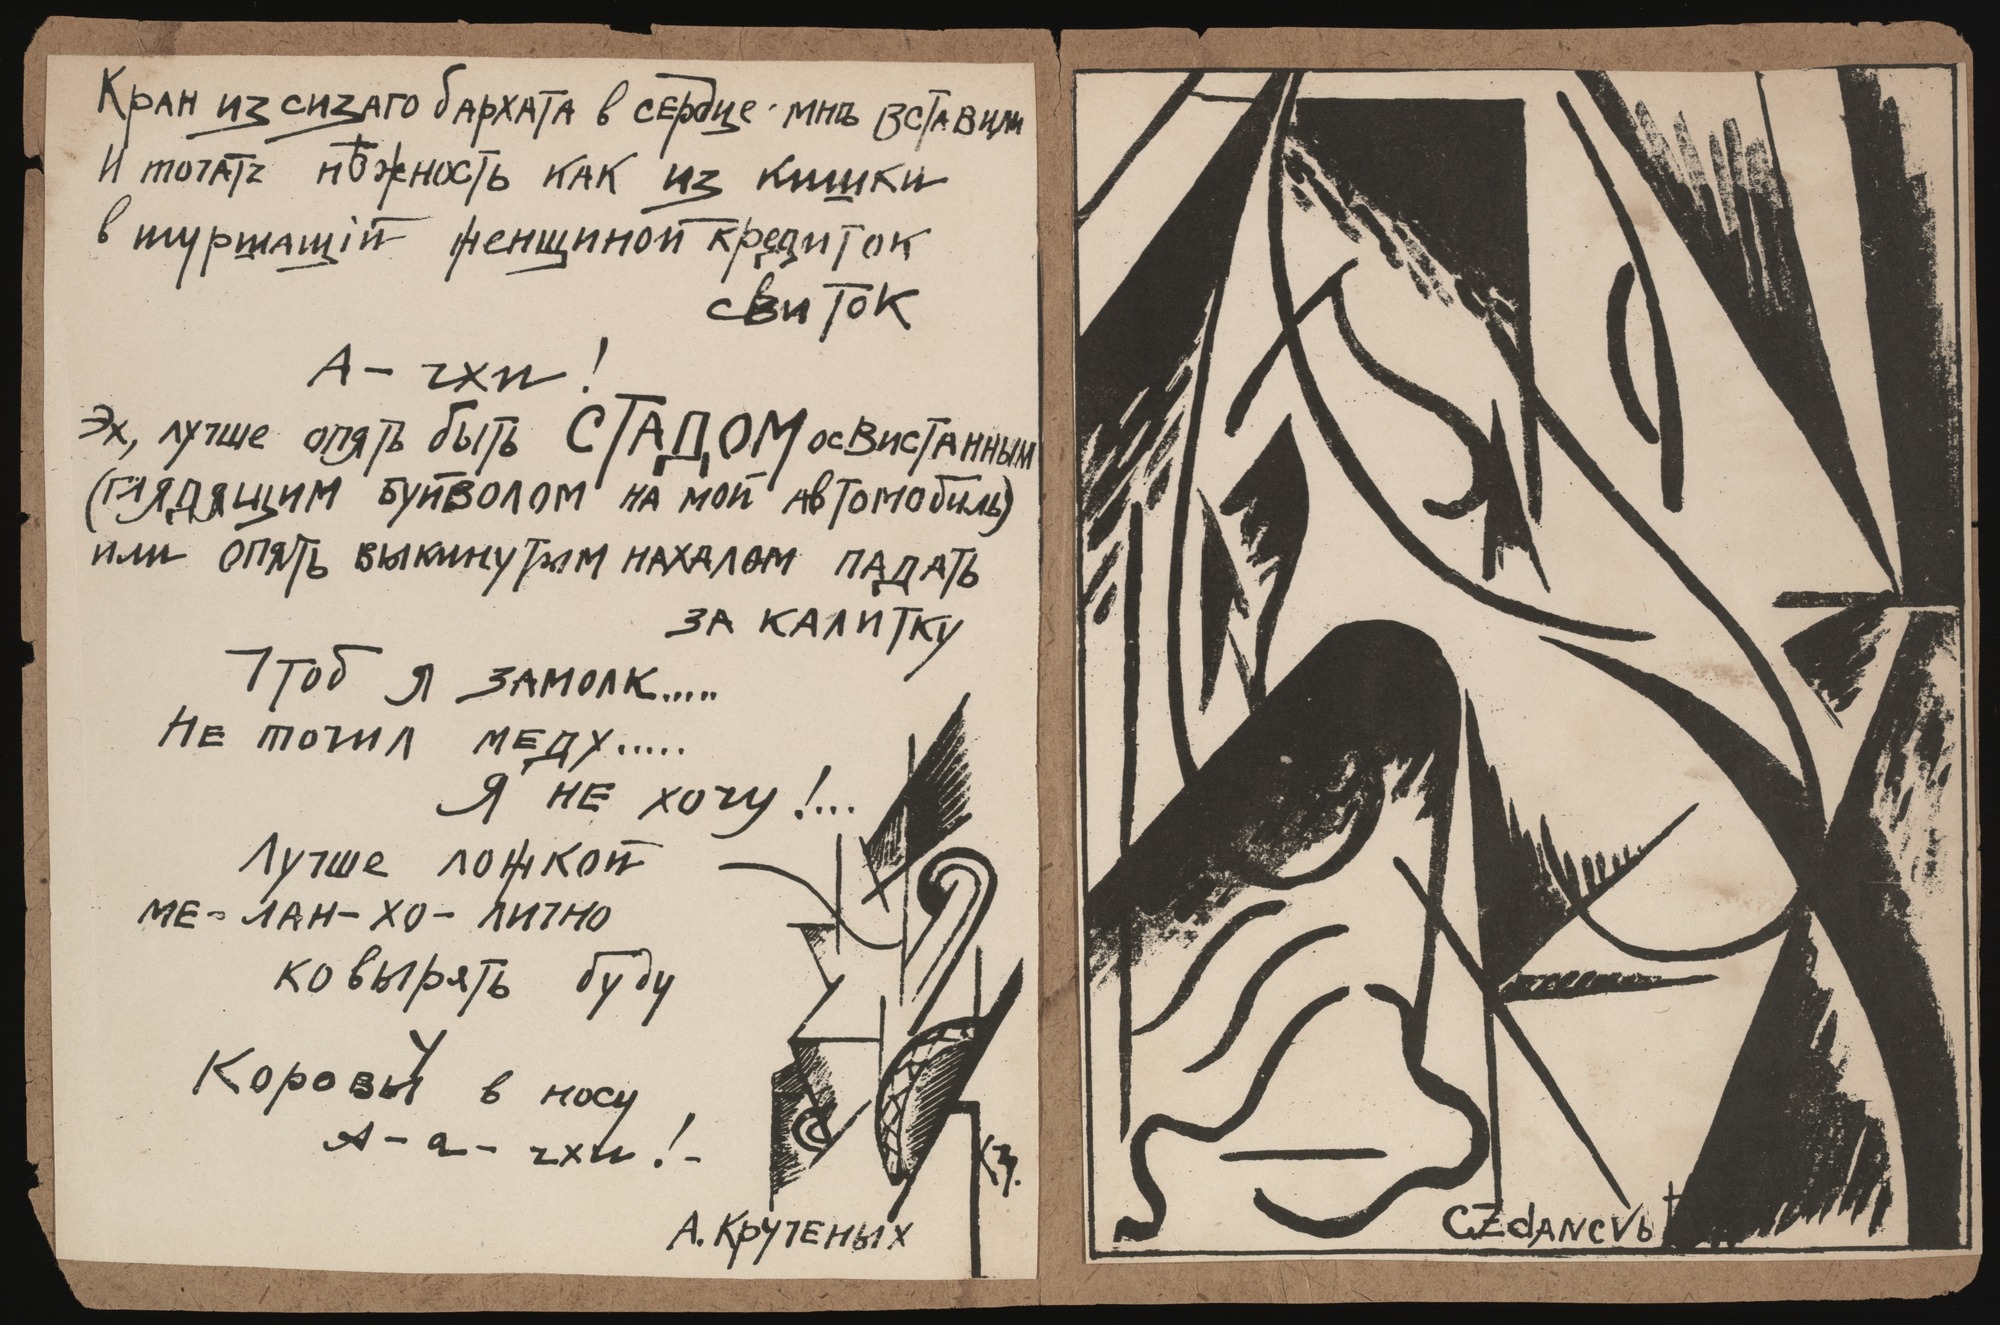 Кран из сизаго бархата в сердце мнѣ вставили
И точатъ нѣжность как из кишки
в шуршащій женщиной кредиток
свиток
А – чхи !
Эх, лучше опять быть СТАДОМ освистанным
(глядящим буйволом на мой автомобиль)
или опять выкинутым нахалом падать
за калитку
Чтоб я замолк.....
Не точил меду.....
Я не хочу !...
Лучше ложкой
ме-лан-хо-лично
ковырять буду
У
Коровы в носу
А-а-чхи !-
А. Крученых
КЗ.
CZdANcVb